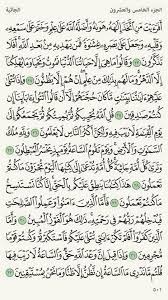 الجزء الخامس والعشرون الجاثية
أَفَرَأَيْتَ مَنِ اتَّخَذَ إِلَٰهَهُ هَوَاهُ وَأَضَلَّهُ اللَّهُ عَلَىٰ عِلْمٍ وَخَتَمَ عَلَىٰ
سَمْعِهِ وَقَلْبِهِ وَجَعَلَ عَلَىٰ بَصَرِهِ غِشَاوَةً فَمَن يَهْدِيهِ مِن بَعْدِ اللَّهِ
أَفَلَا تَذَكَّرُونَ ٢٣ وَقَالُوا مَا هِيَ إِلَّا حَيَاتُنَا الدُّنْيَا نَمُوتُ وَنَحْيَا وَمَا
يُهْلِكُنَا إِلَّا الدَّهْرُ وَمَا لَهُم بِذَٰلِكَ مِنْ عِلْمٍ إِنْ هُمْ إِلَّا يَظُنُّونَ ٢٤
وَإِذَا تُتْلَىٰ عَلَيْهِمْ آيَاتُنَا بَيِّنَاتٍ مَّا كَانَ حُجَّتَهُمْ إِلَّا أَن قَالُوا ائْتُوا بِآبَائِنَا
إِن كُنتُمْ صَادِقِينَ ٢٥ قُلِ اللَّهُ يُحْيِيكُمْ ثُمَّ يُمِيتُكُمْ ثُمَّ يَجْمَعُكُمْ
إِلَىٰ يَوْمِ الْقِيَامَةِ لَا رَيْبَ فِيهِ وَلَٰكِنَّ أَكْثَرَ النَّاسِ لَا يَعْلَمُونَ ٢٦
وَلِلَّهِ مُلْكُ السَّمَاوَاتِ وَالْأَرْضِ وَيَوْمَ تَقُومُ السَّاعَةُ يَوْمَئِذٍ يَخْسَرُ
الْمُبْطِلُونَ ٢٧ وَتَرَىٰ كُلَّ أُمَّةٍ جَاثِيَةً كُلُّ أُمَّةٍ تُدْعَىٰ إِلَىٰ كِتَابِهَا الْيَوْمَ تُجْزَوْنَ مَا كُنتُمْ
تَعْمَلُونَ ٢٨ هَٰذَا كِتَابُنَا يَنطِقُ عَلَيْكُم بِالْحَقِّ إِنَّا كُنَّا نَسْتَنسِخُ
مَا كُنتُمْ تَعْمَلُونَ ٢٩ فَأَمَّا الَّذِينَ آمَنُوا وَعَمِلُوا الصَّالِحَاتِ
فَيُدْخِلُهُمْ رَبُّهُمْ فِي رَحْمَتِهِ ذَٰلِكَ هُوَ الْفَوْزُ الْمُبِينُ ٣٠
وَأَمَّا الَّذِينَ كَفَرُوا أَفَلَمْ تَكُنْ آيَاتِي تُتْلَىٰ عَلَيْكُمْ فَاسْتَكْبَرْتُمْ وَكُنتُمْ
قَوْمًا مُّجْرِمِينَ ٣١ وَإِذَا قِيلَ إِنَّ وَعْدَ اللَّهِ حَقٌّ وَالسَّاعَةُ لَا رَيْبَ فِيهَا
قُلْتُم مَّا نَدْرِي مَا السَّاعَةُ إِن نَّظُنُّ إِلَّا ظَنًّا وَمَا نَحْنُ بِمُسْتَيْقِنِينَ ٣٢
٥٠١